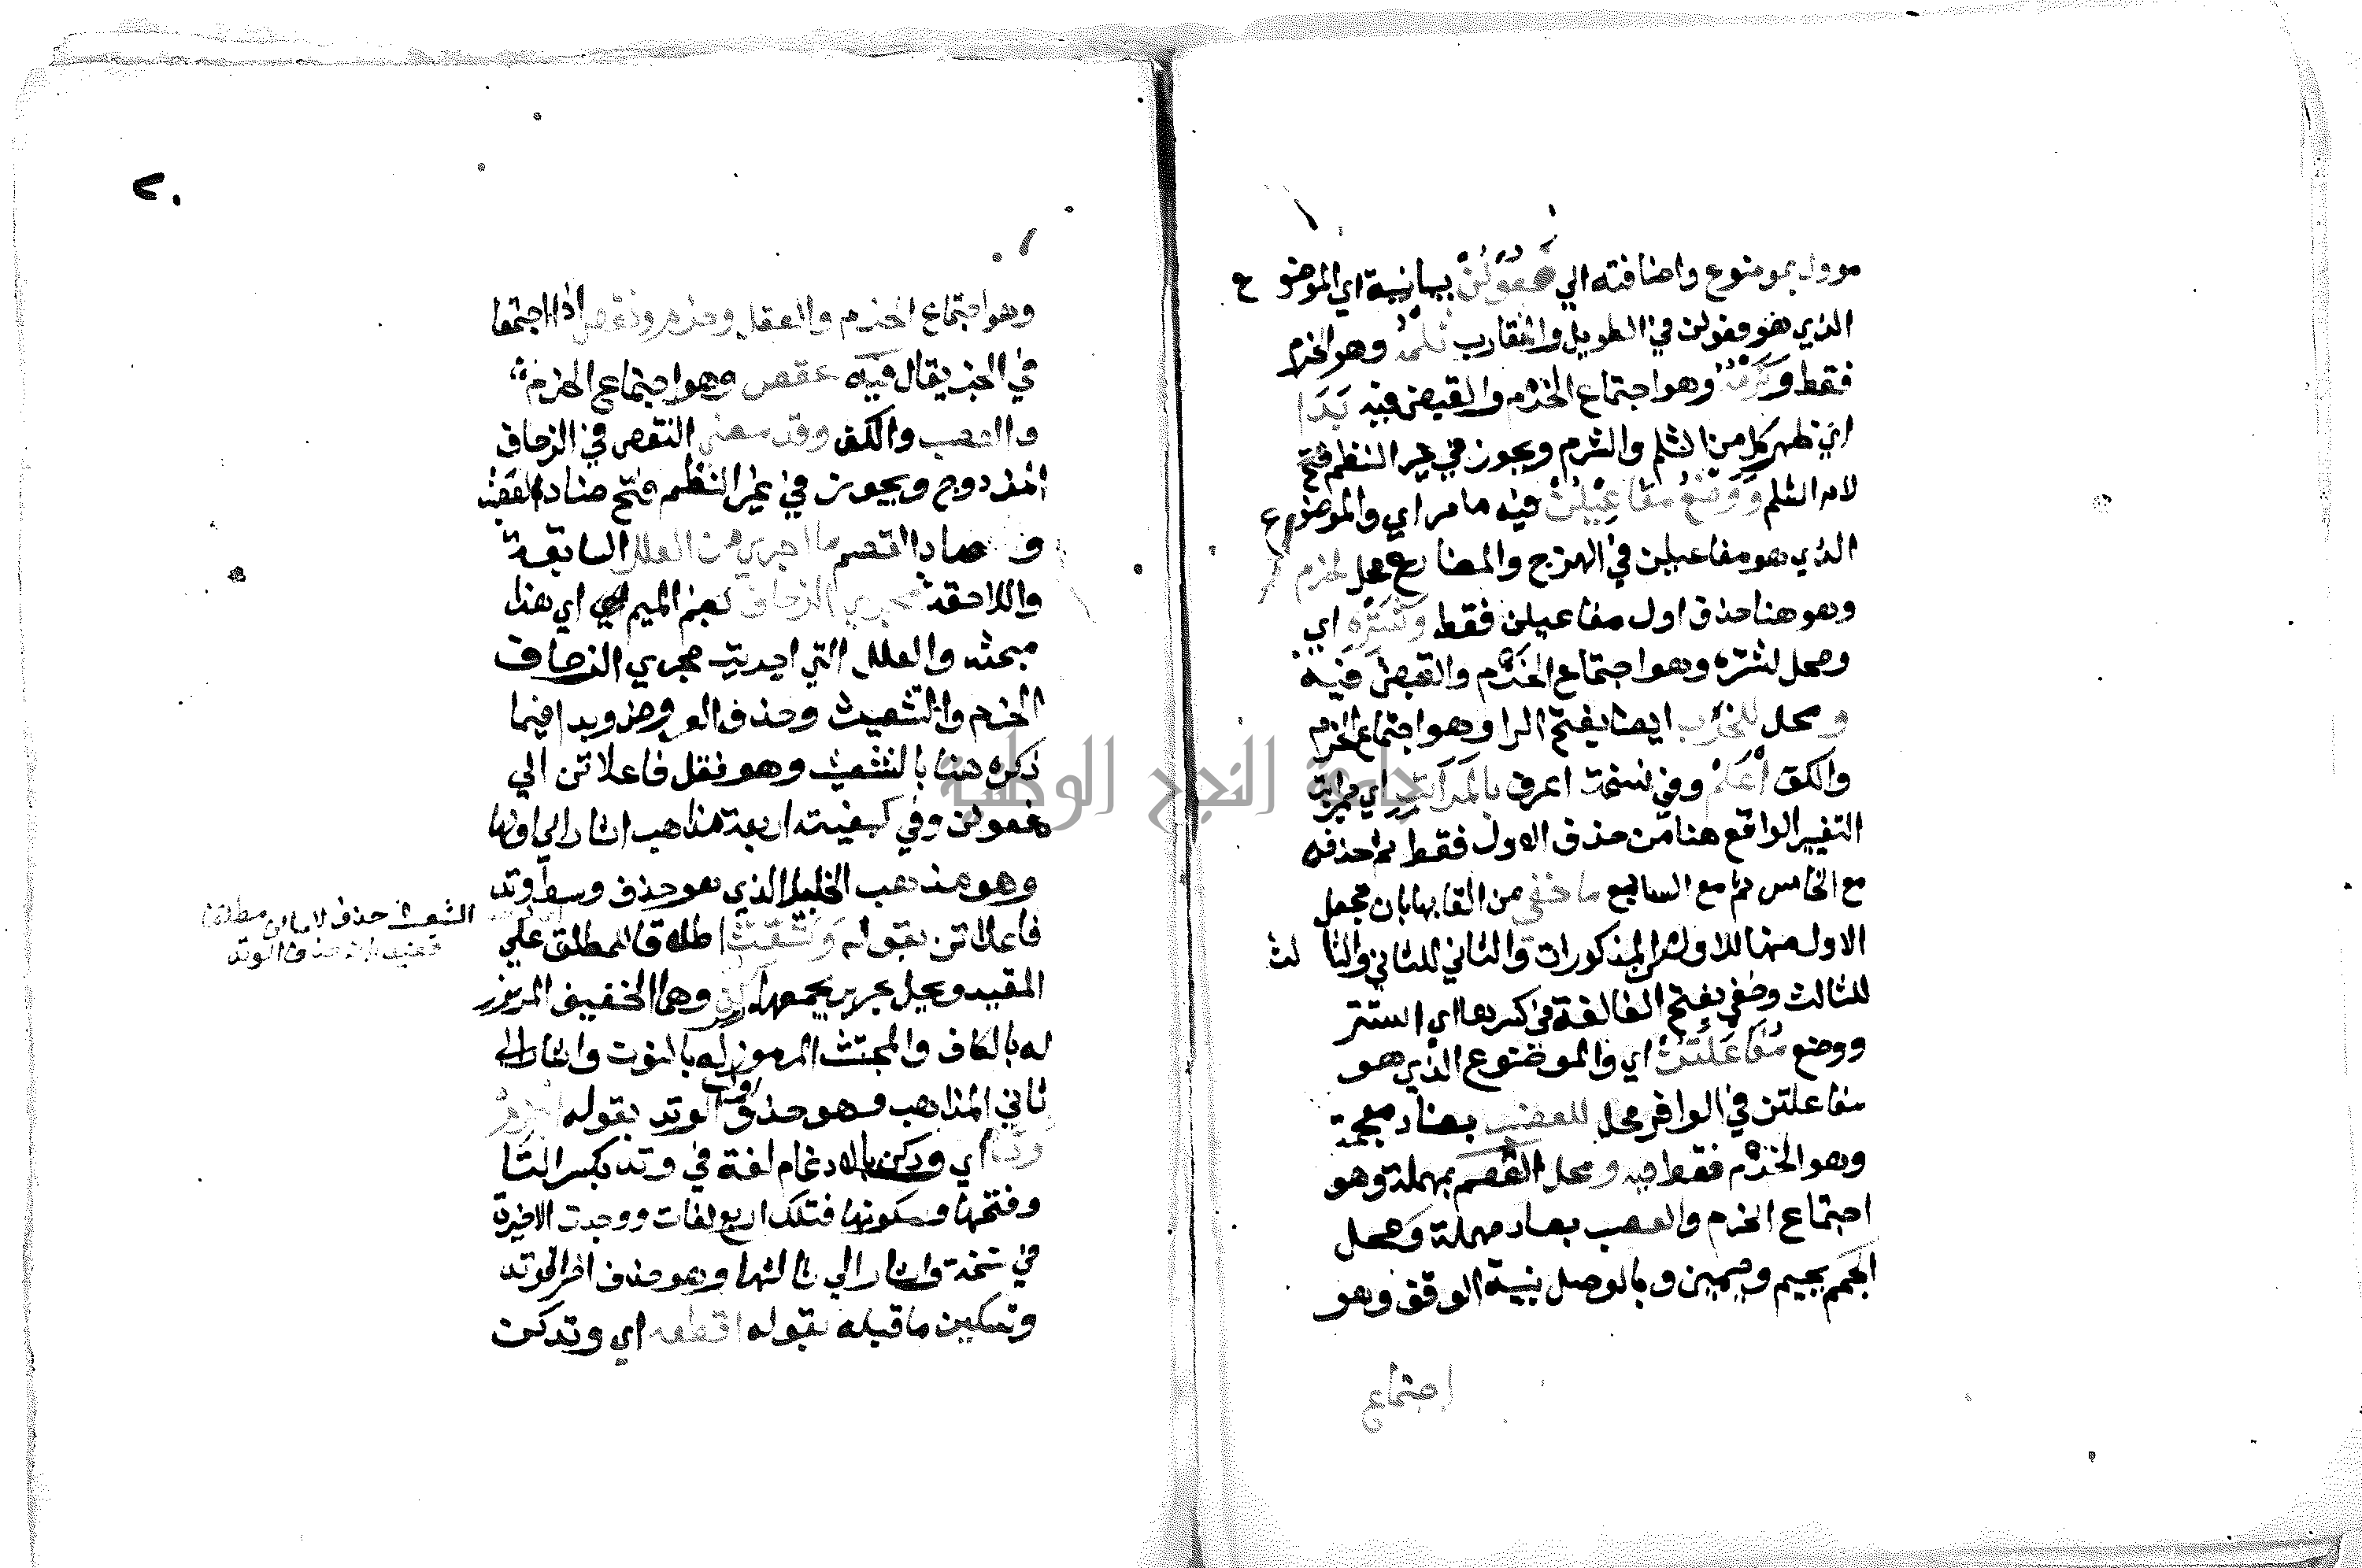 موول بموضوع واضافته الي فَعُوْلُنْ بيانية اي الموضوع
الذي هو فعولن في الطويل والمتقارب ثلمه وهو الخرم
فقط وثرمه وهو اجتماع الخرم والقبض فيه بَدَا
اي ظهر كل من الثلم والثرم ويجوز في غير النظم فتح
لام الثلم وَوَضْعُ مفاعِيْلُنْ فيه ما مر اي والموضوع
الذي هو مفاعيلن في الهزج والمضارع محل لخرم
وهو هنا حذف اول مفاعيلن فقط وشتره اي
ومحل لشتره وهو اجتماع الخَرْم والقبض فيه
ومحل للخرب ايضا بفتح الرا وهو اجتماع الخرم
والكف أعلم وفي نسخة اعرف بالمراتب اي مراتب
التغيير الواقع هنا من حذف الاول فقط ثم حذفه
مع الخامس ثم مع السابع ما خفي من القابها بان تجعل
الاول منها للاول من المذكورات والثاني للثاني والثالث
للثالث وخفي بفتح الفا لغة في كسرها اي استتر
ووضع مُفَاعَلَتُنْ اي والموضوع الذي هو
مفاعلتن في الوافر محل للعضب بضاد معجمة
وهو الخَرْم فقط فيه ومحل القصم بمهملة وهو
اجتماع الخرم والعصب بصاد مهملة ومحل
الجمم بجيم وميمين وبالوصل بنية الوقف وهو
اجتماع
٢٠
وهو اجتماع الخرم والعقل وخرم ونقص اذا اجتمعا
في الجزء يقال فيه عقص وهو اجتماع الخرم
والعصب والكف وقد معني النقص في الزحاف
المزدوج ويجوز في غير النظم فتح ضاد العضب
وصاد القصم ما اجري من العلل السابقة
واللاحقة مجري الزحاف بضم الميم اي هذا
مبحثه والعلل التي اجريت مجري الزحاف
الخرم والتشعيث وحذف العروض وبدا فيما
ذكره هنا بالتشعيث وهو نقل فاعلاتن الي
مفعولن وفي كيفيته اربعة مذاهب اشار الي اولها
وهو مذهب الخليل الذي هو حذف وسط وتد
فاعلاتن بقوله وَتَشَعَّثَ اطلاقا للمطلق علي
المقيد ومحل جريه يجمعها كن وهما الخفيف المرموز
له بالكاف والمجتث المرموز له بالنون واشار الي
ثاني المذاهب وهو حذف اول الوتد بقوله اخرم
ودا اي ودكن بالادغام لغة في وتد بكسر التا
وفتحها وسكونها فتلك اربع لغات ووجدت الاخيرة
في نسخة واشار الي ثالثها وهو حذف اخر الوتد
وتسكين ما قبله بقوله اقطعه اي وتد كن
التشعيث حذف لامها من مطلقا